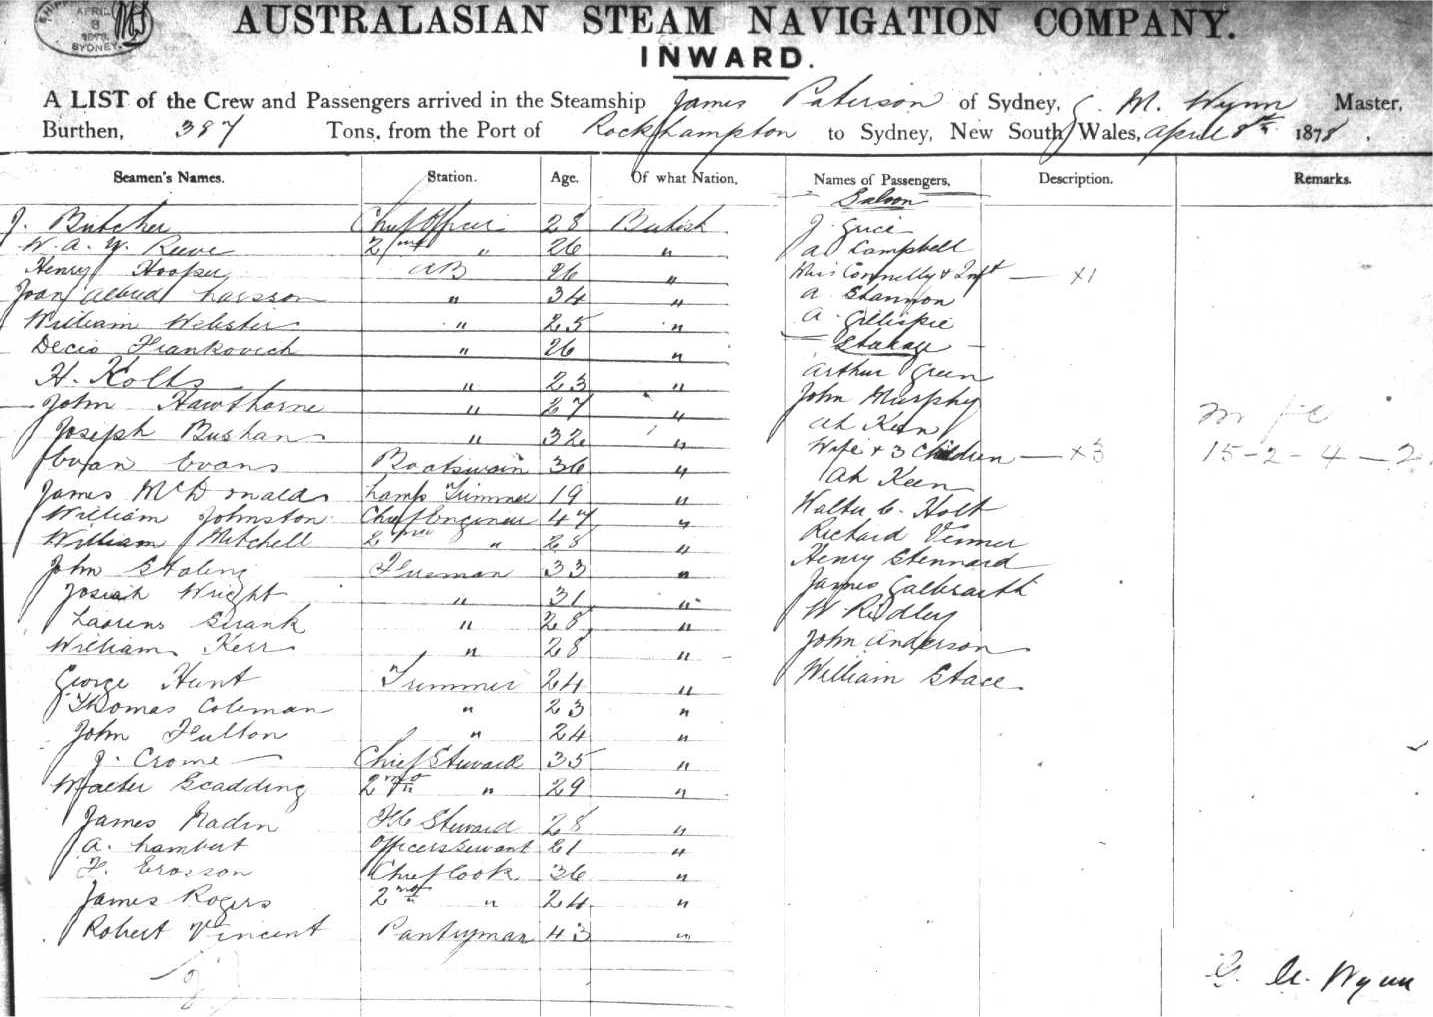 APRIL
8
1878
SYDNEY
AUSTRALASIAN STEAM NAVIGATION COMPANY.
INWARD.
A LIST of the Crew and Passengers arrived in the Steamship James Paterson of Sydney, G. M. Wynn Master,
Burthen, 387 Tons, from the Port of Rockhampton to Sydney, New South Wales, April 8th 1878.
Seamen's Names. Station. Age. Of what Nation. Names of Passengers, Description. Remarks.
Saloon
J. Butcher Chief Officer 28 British J Grice
W. A. Y. Reeve 2nd " 26 " A Campbell
Henry Hooper AB 26 " Connelly & Inft — x1
Joan Alfred Larsson " 34 " A Shannon
William Webster " 25 " A. Gillispie
Decio Frankovich " 26 " Steerage
H. Kolls " 23 " Arthur Green
John Hawthorne " 27 " John Murphy
Joseph Bushan " 32 " Ah Ken
Evan Evans Boatswain 36 " Wife & 3 Children — x3
15-2-4-2
James McDonald Lamp Trimmer 19 " Ah Keen
William Johnston Chief Engineer 47 " Walter C. Holt
William Mitchell 2nd " 28 " Richard Venner
John Fireman 33 " Henry Stennard
Josiah Wright " 31 " James Galbraith
Laorens " 28 " W Ridley
William Kerr " 28 " John Anderson
George Hunt Trimmer 24 " William Stace
Thomas Coleman " 23 "
John Fulton " 24 "
J. Crome Chief Steward 35 "
Walter Scadding 2nd " 29 "
James Nadin F C Steward 28 "
A. Lambert Officers Servant 21 "
F. Erosson Chief Cook 36 "
James Rogers 2nd " 24 "
Robert Vincent Pantryman 43 "
G. M. Wynn